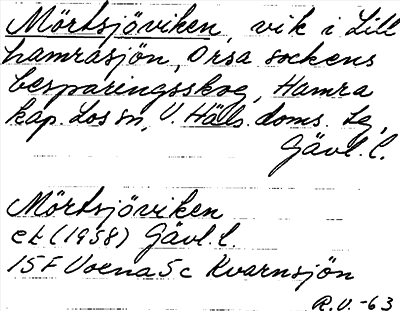 Mörtsjöviken, vik i Lill
hamrasjön, Orsa sockens
besparingsskog, Hamra
kap. Los sn, V. Häls. doms. lg,
Gävl. l.
Mörtsjöviken
ek (1958) Gävl. l.
15F Voxna 5c Kvarnsjön
R.V. -63